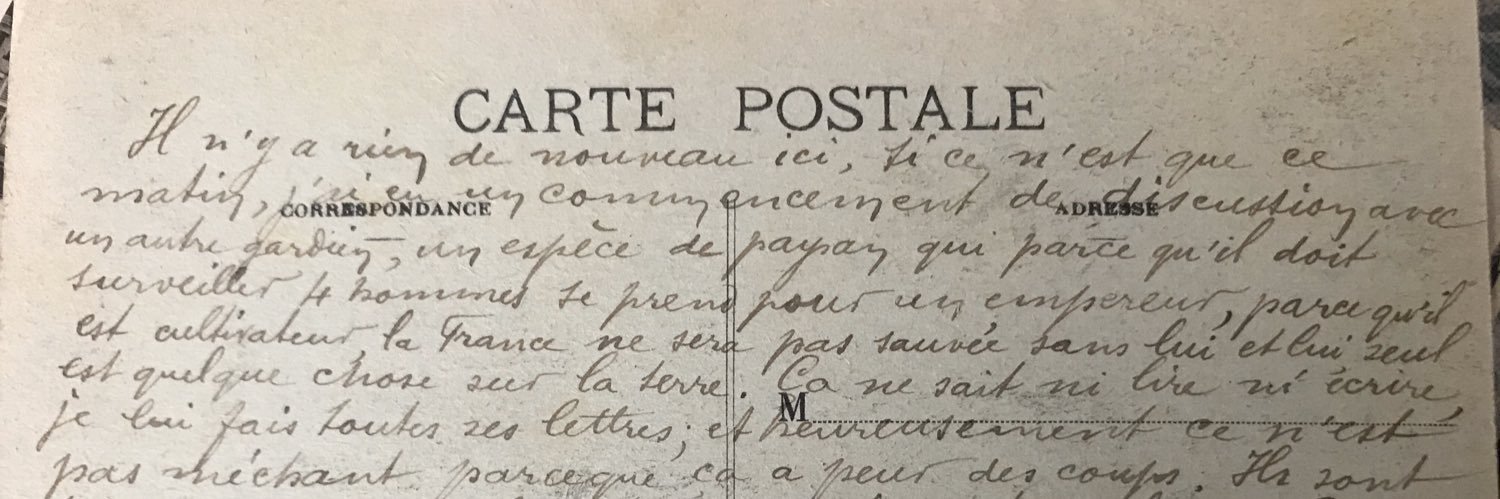 CARTE POSTALE
Il n'y a rien de nouveau ici, si ce n'est que ce
matin, j'ai eu un commencement de discussion avec
CORRESPONDANCE
ADRESSE
un autre gardien, un espèce de paysan qui parce qu'il doit
surveiller 4 hommes se prend pour un empereur, parce qu'il
est cultivateur, la France ne sera pas sauvée sans lui et lui seul
est quelque chose sur la terre. Ça ne sait ni lire ni écrire,
M
je lui fais toutes ses lettres; et heureusement ce n'est
pas méchant parceque ça a peur des coups. Ils sont